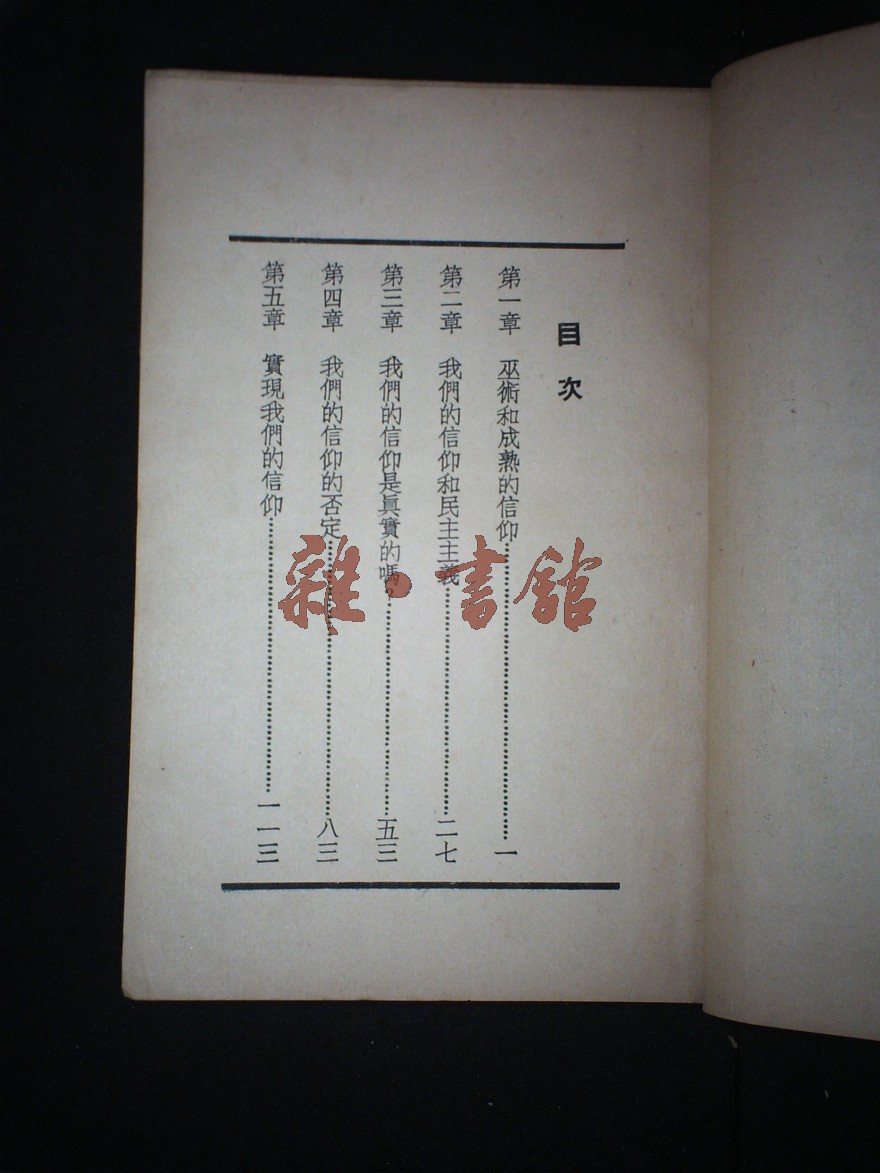 目次
第一章 巫術和成熟的信仰……一
第二章 我們的信仰和民主主義……二七
第三章 我們的信仰是眞實的嗎……五三
第四章 我們的信仰的否定……八三
第五章 實現我們的信仰……一一三
雜·書館